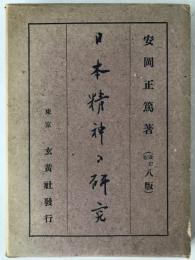 安岡正篤著
(改訂八版)
日本精神の研究
東京 玄黄社發行